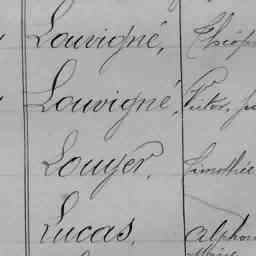 Louvigné,
Louvigné, Victor,
Louyer, Timothée
Lucas, Alphon